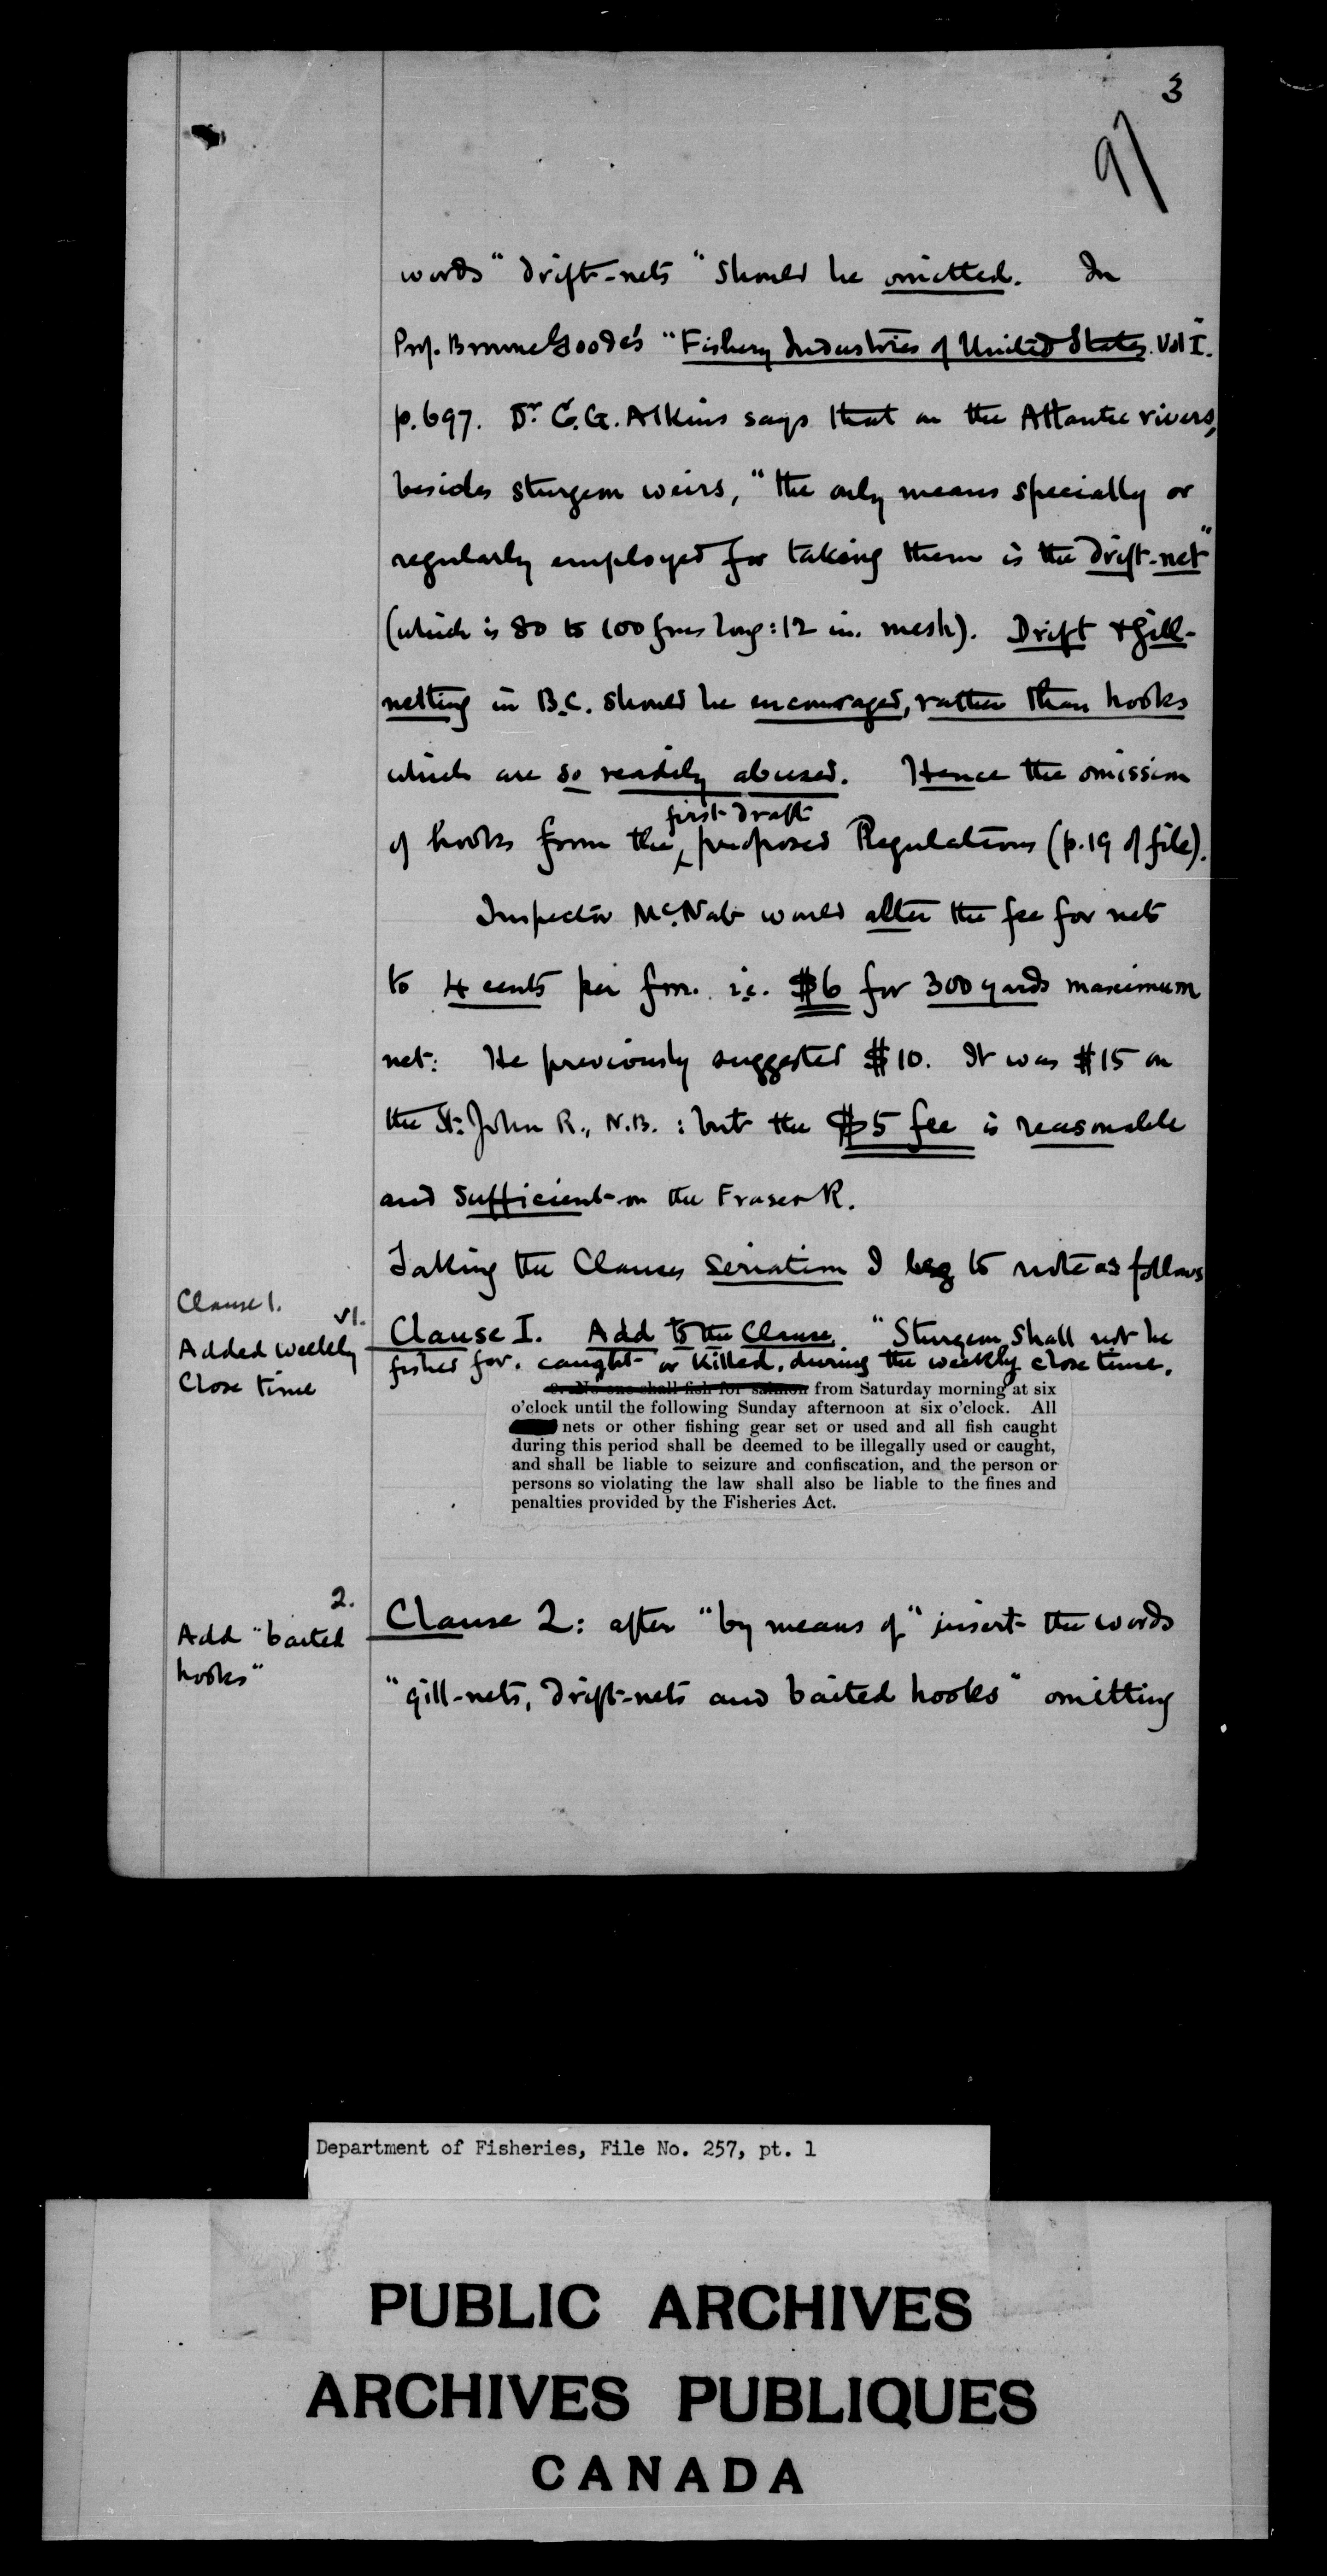 3
91
words "drift-nets" should be omitted. In
Prof. Browne Goode's "Fishery Industries of United States" Vol I.
p. 697. Dr. C. G. Atkins says that on the Atlantic rivers,
besides sturgeon weirs, "the only means specially or
regularly employed for taking them is the drift-net"
(which is 80 to 100 fms long: 12 in. mesh). Drift & gill-
netting in B.C. should be encouraged, rather than hooks
which are so readily abused. Hence the omission
first draft
of hooks from the proposed Regulations (p. 19 of file).
Inspector McNab would alter the fee for nets
to 4 cents per fm. i.e. $6 for 300 yards maximum
net: He previously suggested $10. It was $15 on
the St. John R., N.B.: but the $5 fee is reasonable
and sufficient on the Fraser R.
Taking the Clauses seriatim I beg to note as follows
Clause 1.
v1.
Added weekly
Close time
Clause I. Add to the Clause "Sturgeon shall not be
fished for, caught or killed, during the weekly close time,
No one shall fish for salmon from Saturday morning at six
o'clock until the following Sunday afternoon at six o'clock. All
nets or other fishing gear set or used and all fish caught
during this period shall be deemed to be illegally used or caught,
and shall be liable to seizure and confiscation, and the person or
persons so violating the law shall also be liable to the fines and
penalties provided by the Fisheries Act.
2.
Add "baited
hooks"
Clause 2: after "by means of" insert the words
"gill-nets, drift-nets and baited hooks" omitting
Department of Fisheries, File No. 257, pt. 1
PUBLIC ARCHIVES
ARCHIVES PUBLIQUES
CANADA